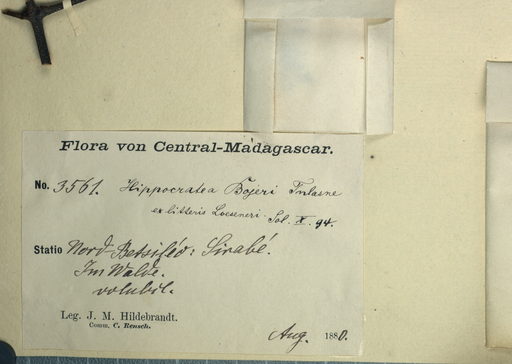 Flora von Central-Madagascar.
No. 3561. Hippocratea Bojeri Tulasne
ex litteris Loeseneri. Sol. X. 94.
Statio Nord-Betsiléo: Sirabé.
Im Walde.
volubil.
Leg. J. M. Hildebrandt.
Comm. C. Rensch.
Aug. 1880.